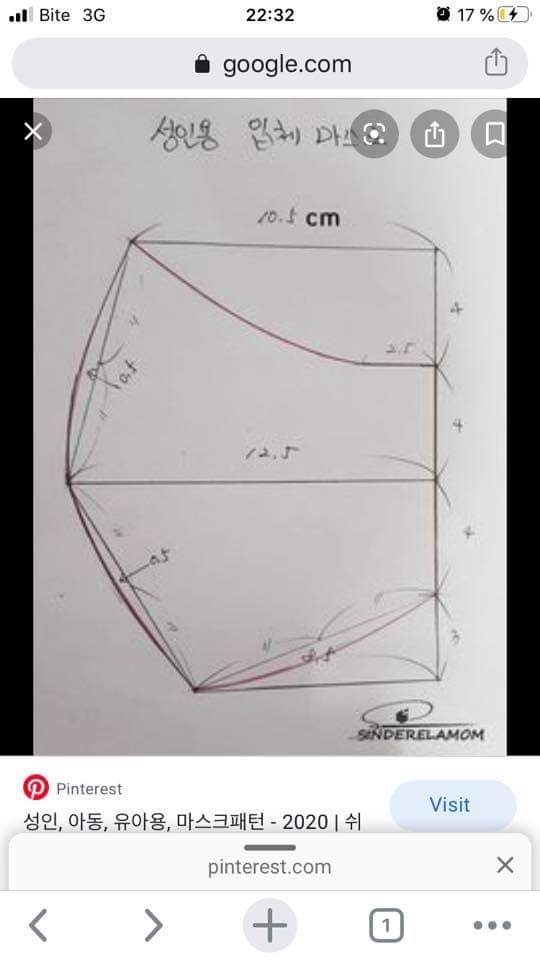 Bite 3G 22:32 17 %
google.com
성인용 입체 마스크
10.5 cm
4
2.5
0.5
4
12.5
4
0.5
3
SINDERELAMOM
Pinterest
성인, 아동, 유아용, 마스크패턴 - 2020 | 쉬
Visit
pinterest.com
1